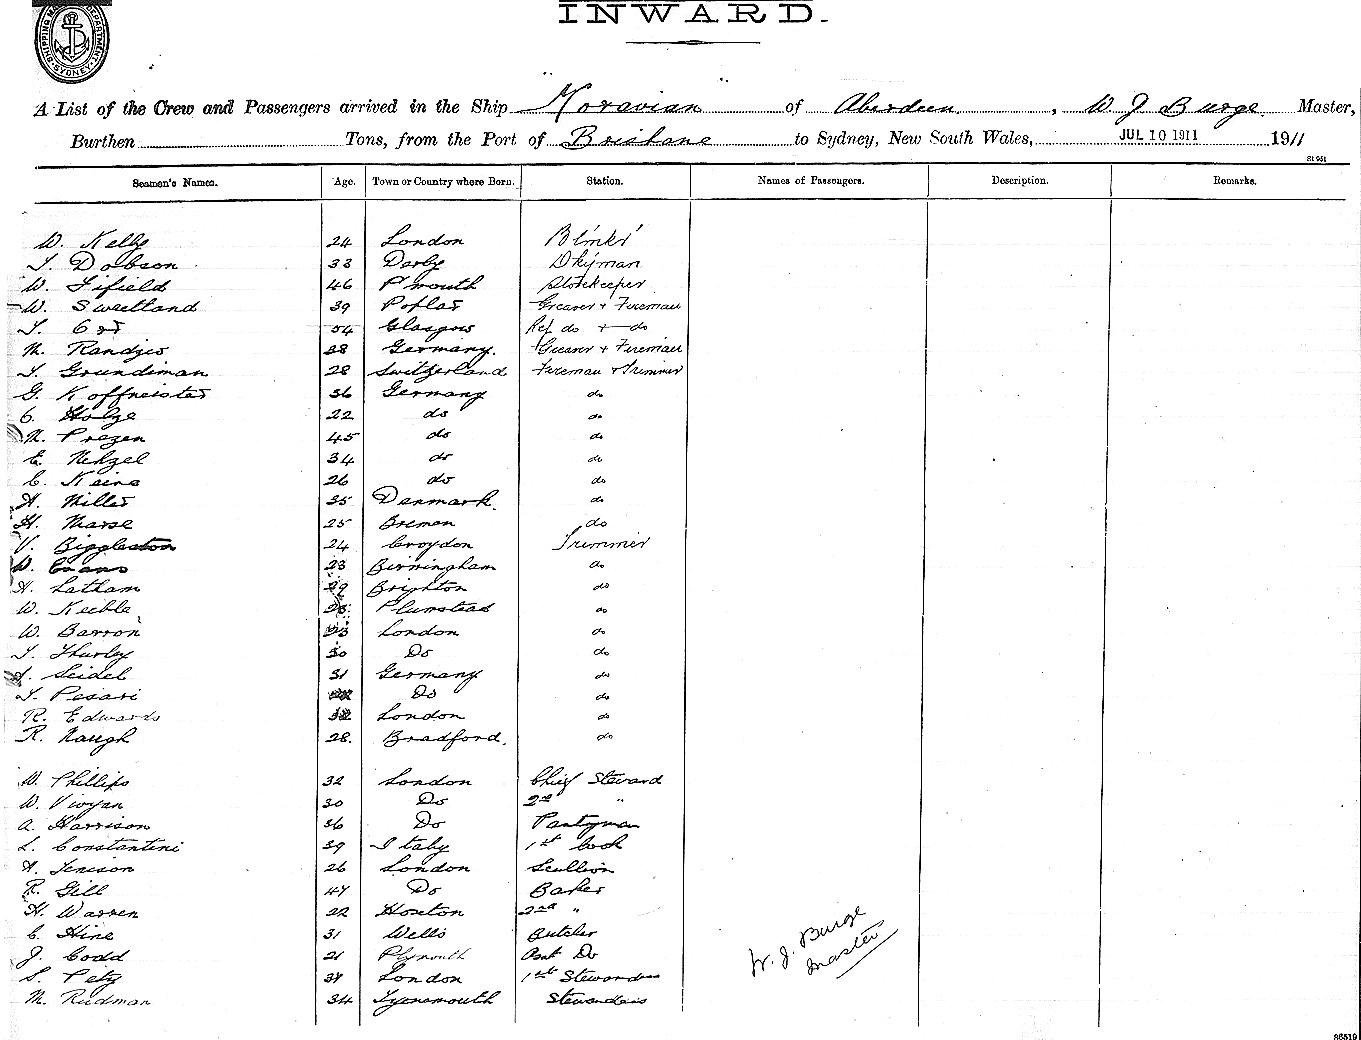 SHIPPING MA DEPARTMENT. SYDNEY.
INWARD.
A List of the Crew and Passengers arrived in the Ship Moravian of Aberdeen, W. J. Burge Master,
Burthen Tons, from the Port of Brisbane to Sydney, New South Wales, JUL 10 1911 1911
St 951
Seamen's Names. Age. Town or Country where Born. Station. Names of Passengers. Description. Remarks.
W. Kelly 24 London
T. Dobson 33 Derby Dkyman
W. Fifield 46 P'mouth Storekeeper
W. Sweetland 39 Poplar Greaser + Fireman
54 Glasgow Ref do + do
M. 28 Germany. Greaser + Fireman
T. Grundiman 28 Switzerland Fireman + Trimmer
G. Koffmeister 36 Germany do
C. Holze 22 do do
45 do do
E. 34 do do
C. 26 do do
A. Miller 35 Denmark. do
H. Marse 25 Bremen do
V. Biggleston 24 Croydon Trimmer
W. Evans 23 Birmingham do
A. Latham 29 Brighton do
W. Keeble Plumstead do
W. Barron London do
T. Thurley 30 Do do
Seidel 31 Germany do
T. Pesari Do do
R. Edwards London do
R. Naugh 28. Bradford. do
W. Phillips 32 London Chief Steward
W. Vivyan 30 Do 2nd "
A. Harrison 36 Do Pantryman
L. Constantini 39 Italy 1st Cook
A. Jenison 26 London Scullion
R. Gill 47 Do Baker
H. Warren 22 Hoxton 2nd "
C. Hine 31 Wells Butcher
J. Codd 21 Plymouth Asst Do
S. Petz London 1st Stewardess
M. Rudman 34 Tynemouth Stewardess
W. J. Burge
Master
86519